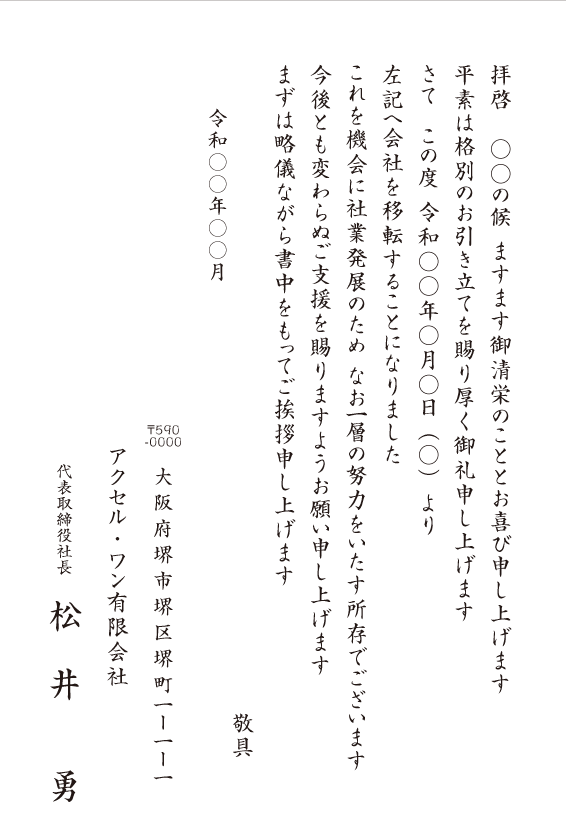 拝啓　〇〇の候　ますます御清栄のこととお喜び申し上げます
平素は格別のお引き立てを賜り厚く御礼申し上げます
さて　この度　令和〇〇年〇月〇日（〇）より
左記へ会社を移転することになりました
これを機会に社業発展のため　なお一層の努力をいたす所存でございます
今後とも変わらぬご支援を賜りますようお願い申し上げます
まずは略儀ながら書中をもってご挨拶申し上げます
敬具
令和〇〇年〇〇月
〒590
-0000
大阪府堺市堺区堺町一ー一ー一
アクセル・ワン有限会社
代表取締役社長　松井　勇